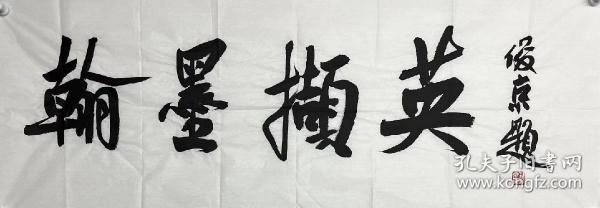 翰墨撷英
俊京题
孔夫子旧书网
www.kongfz.com